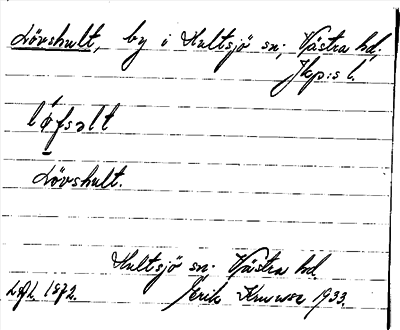 Lövshult, by i Hultsjö sn; Västra hd,
Jkp:s l.
lǿ̠fsəlt
Lövshult.
Hultsjö sn. Västra hd.
1872. Erik 1933.